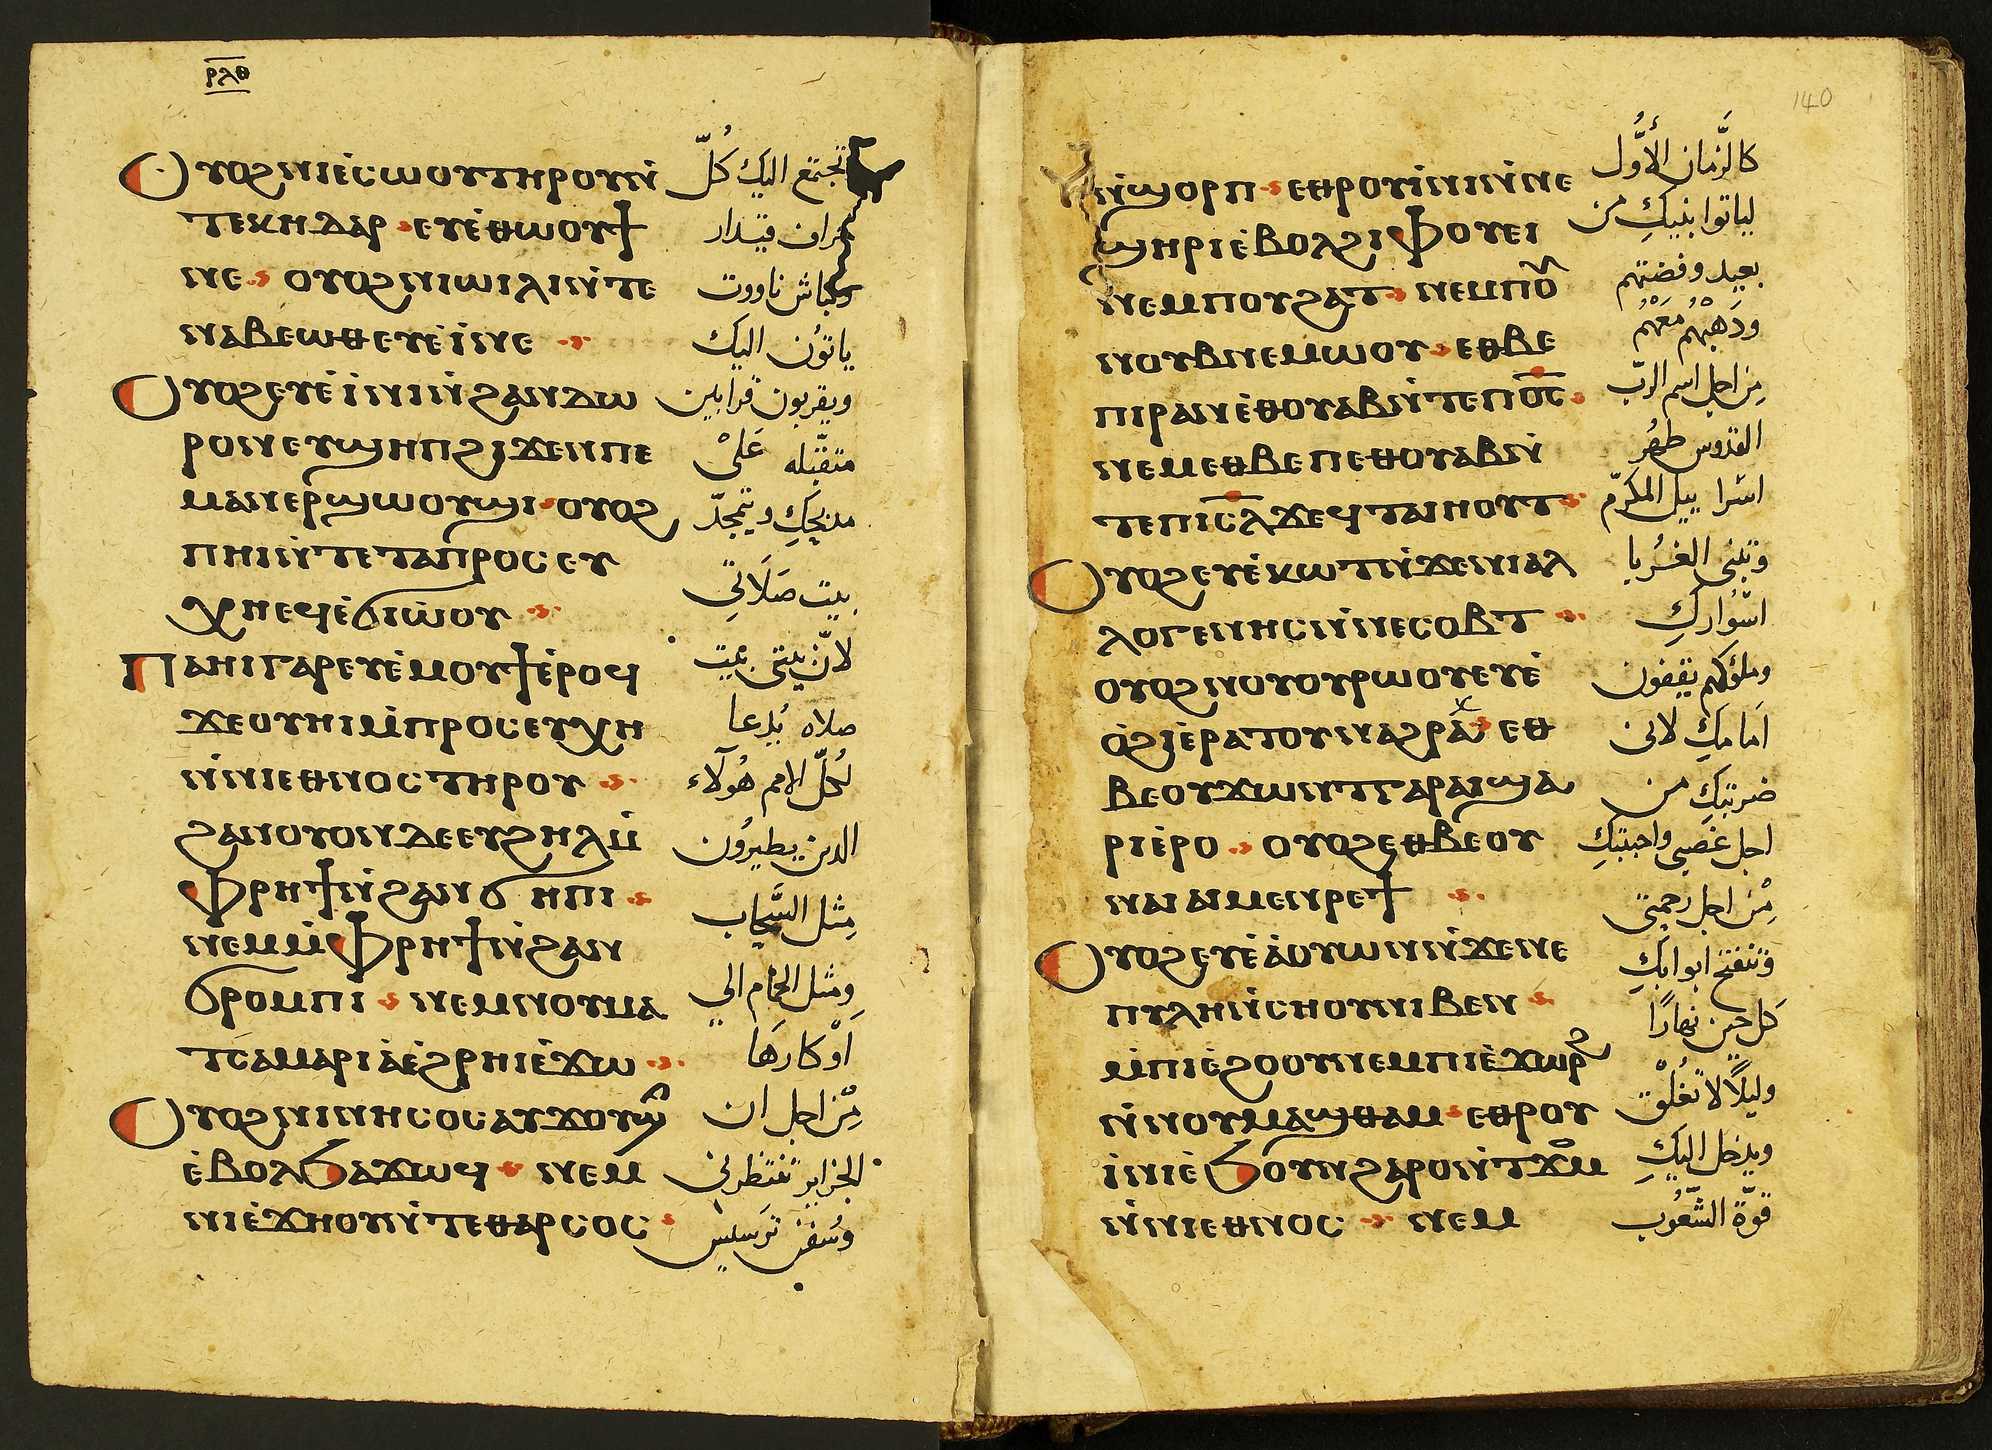 ⲣⲗⲑ
ⲟⲩⲟϩ ⲛⲓⲉ̀ⲥⲱⲟⲩ ⲧⲏⲣⲟⲩ ⲛ̀
ⲧⲉ ⲕⲏⲇⲁⲣ ⲉⲩⲉ̀ⲑⲱⲟⲩϯ
ⲛⲉ ⲟⲩⲟϩ ⲛⲓⲱⲓⲗⲓ ⲛ̀ⲧⲉ
ⲛⲁⲃⲉⲱⲑ ⲉⲩⲉ̀ⲓ̀ ⲛⲉ
ⲟⲩⲟϩ ⲉⲩⲉ̀ⲓ̀ⲛⲓ ⲛ̀ϩⲁⲛⲇⲱ
ⲣⲟⲛ ⲉⲩϣⲏⲡ ϩⲓϫⲉⲛ ⲡⲉ
ⲙⲁⲛⲉⲣϣⲱⲟⲩϣⲓ ⲟⲩⲟϩ
ⲡⲏⲓ ⲛ̀ⲧⲉ ⲧⲁⲡⲣⲟⲥⲉⲩ
ⲭⲏ ⲉϥⲉ̀ϭⲓⲱ̀ⲟⲩ
ⲡⲁⲏⲓ ⲅⲁⲣ ⲉⲩⲉ̀ⲙⲟⲩϯ ⲉ̀ⲣⲟϥ
ϫⲉ ⲟⲩⲏⲓ ⲙ̀ⲡⲣⲟⲥⲉⲩⲭⲏ
ⲛ̀ⲛⲓⲉⲑⲛⲟⲥ ⲧⲏⲣⲟⲩ
ϩⲁⲛⲟⲩⲟⲛ ⲇⲉ ⲉⲩϩⲏⲗ ⲙ̀
ⲫⲣⲏϯ ⲛ̀ϩⲁⲛϭⲏⲡⲓ
ⲛⲉⲙ ⲙ̀ⲫⲣⲏϯ ⲛ̀ϩⲁⲛ
ϭⲣⲟⲙⲡⲓ ⲛⲉⲙ ⲛⲟⲩⲙⲁ
ⲧⲥⲁⲙⲁⲣⲓⲁ̀ ⲉ̀ϩⲣⲏⲓ ⲉ̀ϫⲱ
ⲟⲩⲟϩ ⲛⲓⲛⲏⲥⲟⲥ ⲁⲩϫⲟⲩϣⲧ
ⲉ̀ⲃⲟⲗ ϧⲁϫⲱϥ ⲛⲉⲙ
ⲛⲓⲉ̀ϫⲏⲟⲩ ⲛ̀ⲧⲉ ⲑⲁⲣⲥⲟⲥ
تجتمع اليك كُلّ
خراف قيدار
وكباش ناووت
ياتوُن اليك
ويقربون قرابين
متقبّله عَلىْ
مدبحِك ويتمجدّ
بيت صَلَاتِي
لانّ بيتي بيت
صلاه يُدعا
لكُلّ الامم هُولَاء
الدين يطيرُون
مِثل السَّحاب
وِمثل الحمام الي
اَوْكارهَا
مِنْ اجل ان
الجزاير تنتظرني
وسُفن ترسيس
140
ⲛ̀ϣⲟⲣⲡ ⲉⲑⲣⲟⲩⲓ̀ⲛⲓ ⲛ̀ⲛⲉ
ϣⲏⲣⲓ ⲉ̀ⲃⲟⲗ ϩⲓ ⲫⲟⲩⲉⲓ
ⲛⲉⲙ ⲡⲟⲩϩⲁⲧ ⲛⲉⲙ ⲡⲟⲩ
ⲛⲟⲩⲃ ⲛⲉⲙⲱⲟⲩ ⲉⲑⲃⲉ
ⲡⲓⲣⲁⲛ ⲉ̀ⲑⲟⲩⲁⲃ ⲛ̀ⲧⲉ ⲡⲟ̅ⲥ̅
ⲛⲉⲙ ⲉⲑⲃⲉ ⲡⲉⲑⲟⲩⲁⲃ ⲛ̀
ⲧⲉ ⲡⲓⲥ̅ⲗ̅ ϫⲉ ϥⲧⲁⲓⲏⲟⲩⲧ
ⲟⲩⲟϩ ⲉⲩⲉ̀ⲕⲱⲧ ⲛ̀ϫⲉ ⲛⲓⲁⲗ
ⲗⲟⲅⲉⲛⲏⲥ ⲛ̀ⲛⲉⲥⲟⲃⲧ
ⲟⲩⲟϩ ⲛⲟⲩⲟⲩⲣⲱⲟⲩ ⲉⲩⲉ̀
ⲟ̀ϩⲓ ⲉ̀ⲣⲁⲧⲟⲩ ⲛⲁϩⲣⲁ ⲉⲑ
ⲃⲉ ⲟⲩϫⲱⲛⲧ ⲅⲁⲣ ⲁⲓϣⲁ
ⲣⲓ ⲉ̀ⲣⲟ ⲟⲩⲟϩ ⲉⲑⲃⲉ ⲟⲩ
ⲛⲁⲓ ⲁⲓⲙⲉⲛⲣⲉϯ
ⲟⲩⲟϩ ⲉⲩⲉ̀ⲁ̀ⲟⲩⲱⲛ ⲛ̀ϫⲉ ⲛⲉ
ⲡⲩⲗⲏ ⲛ̀ⲥⲏⲟⲩ ⲛⲓⲃⲉⲛ
ⲙ̀ⲡⲓⲉ̀ϩⲟⲟⲩ ⲛⲉⲙ ⲡⲓⲉ̀ϫⲱⲣϩ
ⲛ̀ⲛⲟⲩⲙⲁϣⲑⲁⲙ ⲉⲑⲣⲟⲩ
ⲓ̀ⲛⲓ ⲉ̀ϧⲟⲩⲛ ϩⲁⲣⲟ ⲛ̀ⲧϫⲟⲙ
ⲛ̀ⲛⲓⲉⲑⲛⲟⲥ ⲛⲉⲙ
كالزَّمان الأُوَّل
لياتوا بنيكِ من
بعيد وفضتهم
ودَهبُهُم مَعَهُم
مِن اجل اسم الربّ
القدوس طهُر
اسراييل المكرّم
وتبني الغُربا
اسْوَاركِ
وملوُكهم يقفون
اَمامكِ لاني
ضربتكِ من
اجل غضبي واحببتكِ
مِنْ اجل رحمتي
وتنفتح ابوابكِ
كَل حين نهارًا
وليلًا لا تُغلَق
ويدخل اليكِ
قوّة الشّعُوب